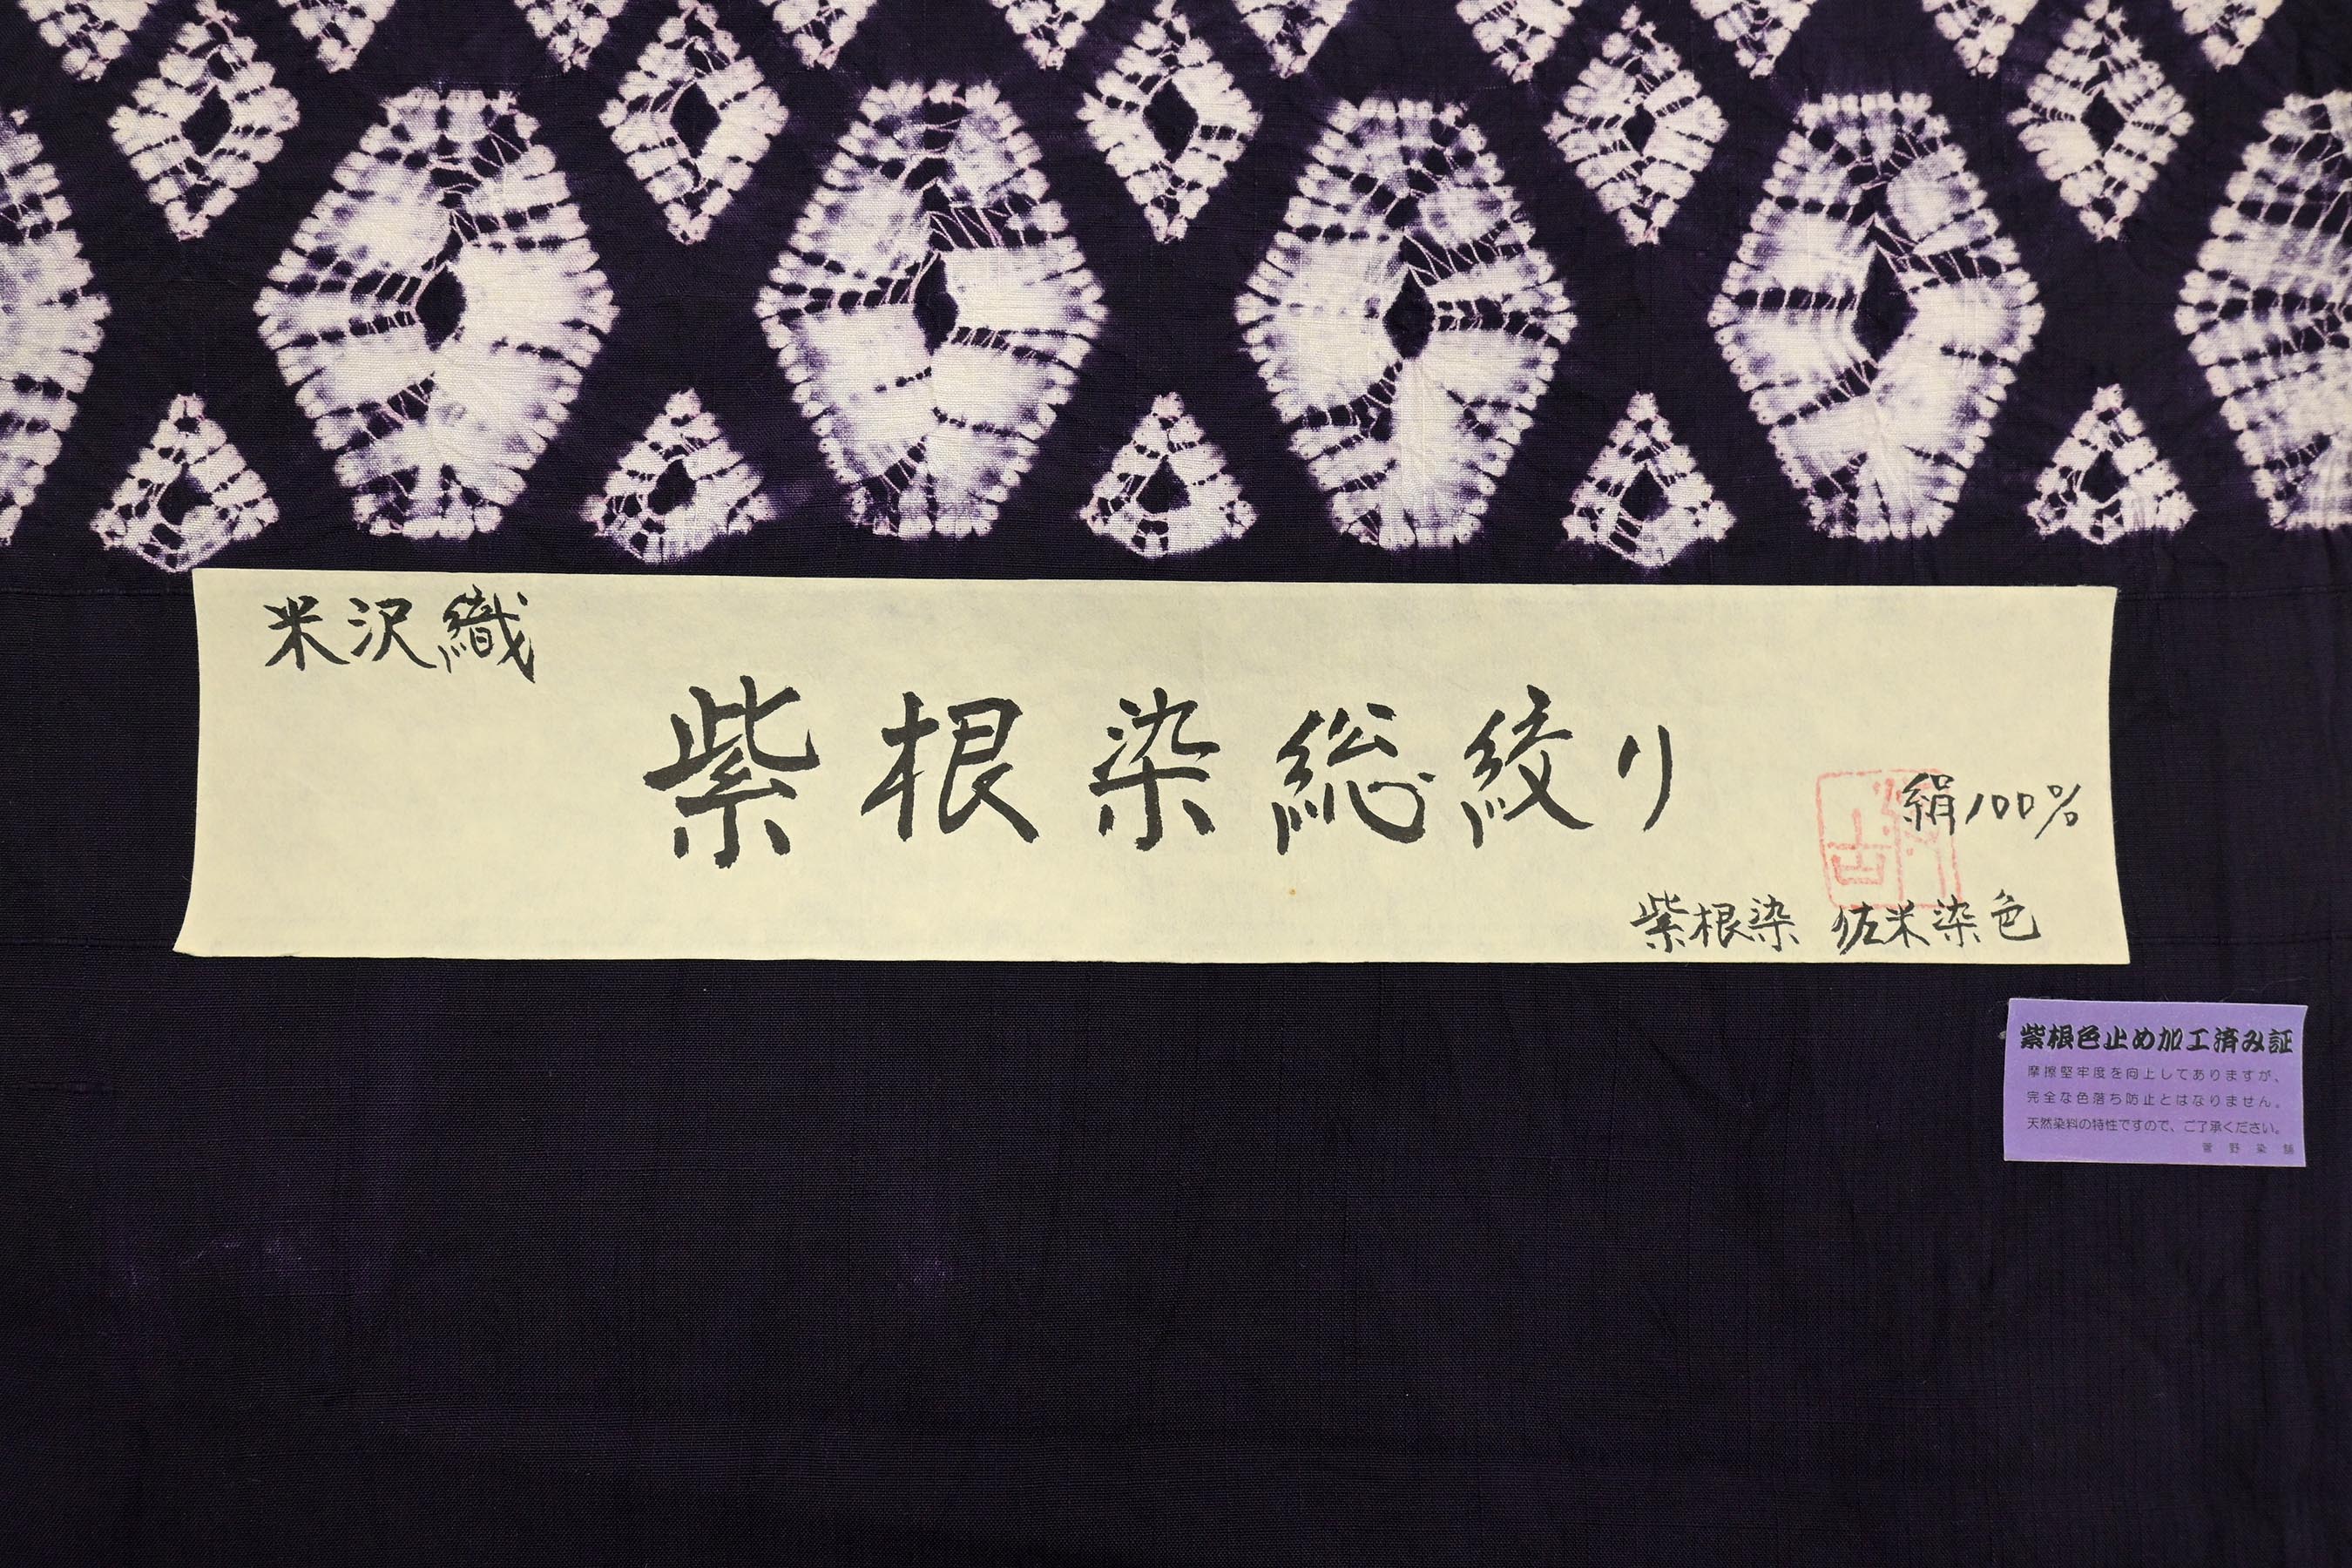 米沢織
紫根染総絞り
絹100%
紫根染 佐米染色
紫根色止め加工済み証
摩擦堅牢度を向上してありますが、
完全な色落ち防止とはなりません。
天然染料の特性ですので、ご了承ください。
菅野染舗